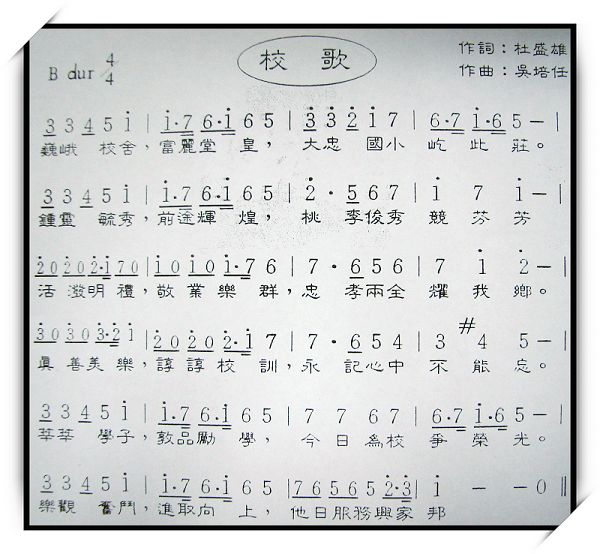 校 歌
作詞：杜盛雄
B dur 4/4
作曲：吳培任
3 3 4 5 i | i·7 6·i 6 5 | 3 3 2 i 7 | 6·7 i·6 5 — |
巍峨 校舍，富麗堂 皇， 大忠 國小 屹 此 莊。
3 3 4 5 i | i·7 6·i 6 5 | 2 · 5 6 7 | i 7 i — |
鍾靈 毓秀，前途輝 煌， 桃 李俊秀 競 芬 芳
2 0 2 0 2·i 7 0 | i 0 i 0 i·7 6 | 7 · 6 5 6 | 7 i 2 — |
活 潑明 禮，敬 業 樂 群，忠 孝兩全 耀 我 鄉。
3 0 3 0 3·2 i | 2 0 2 0 2·i 7 | 7 · 6 5 4 | 3 #4 5 — |
真 善美 樂，諄 諄 校 訓，永 記心中 不 能 忘。
3 3 4 5 i | i·7 6·i 6 5 | 7 7 6 7 | 6·7 i·6 5 — |
莘莘 學子，敦品勵 學， 今 日 為校 爭 榮 光。
3 3 4 5 i | i·7 6·i 6 5 | 7 6 5 6 5 2·3 | i — — 0 ||
樂觀 奮鬥，進取向 上， 他日服務興家 邦